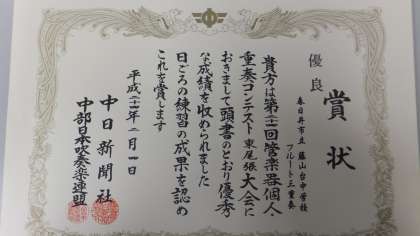 優良
賞状
春日井市立 藤山台中学校
フルート三重奏
貴方は第二回管楽器個人
重奏コンテスト東尾張大会に
おきまして頭書のとおり優秀
な成績を収められました
日ごろの練習の成果を認め
これを賞します
平成二十四年二月四日
中日新聞社
中部日本吹奏楽連盟